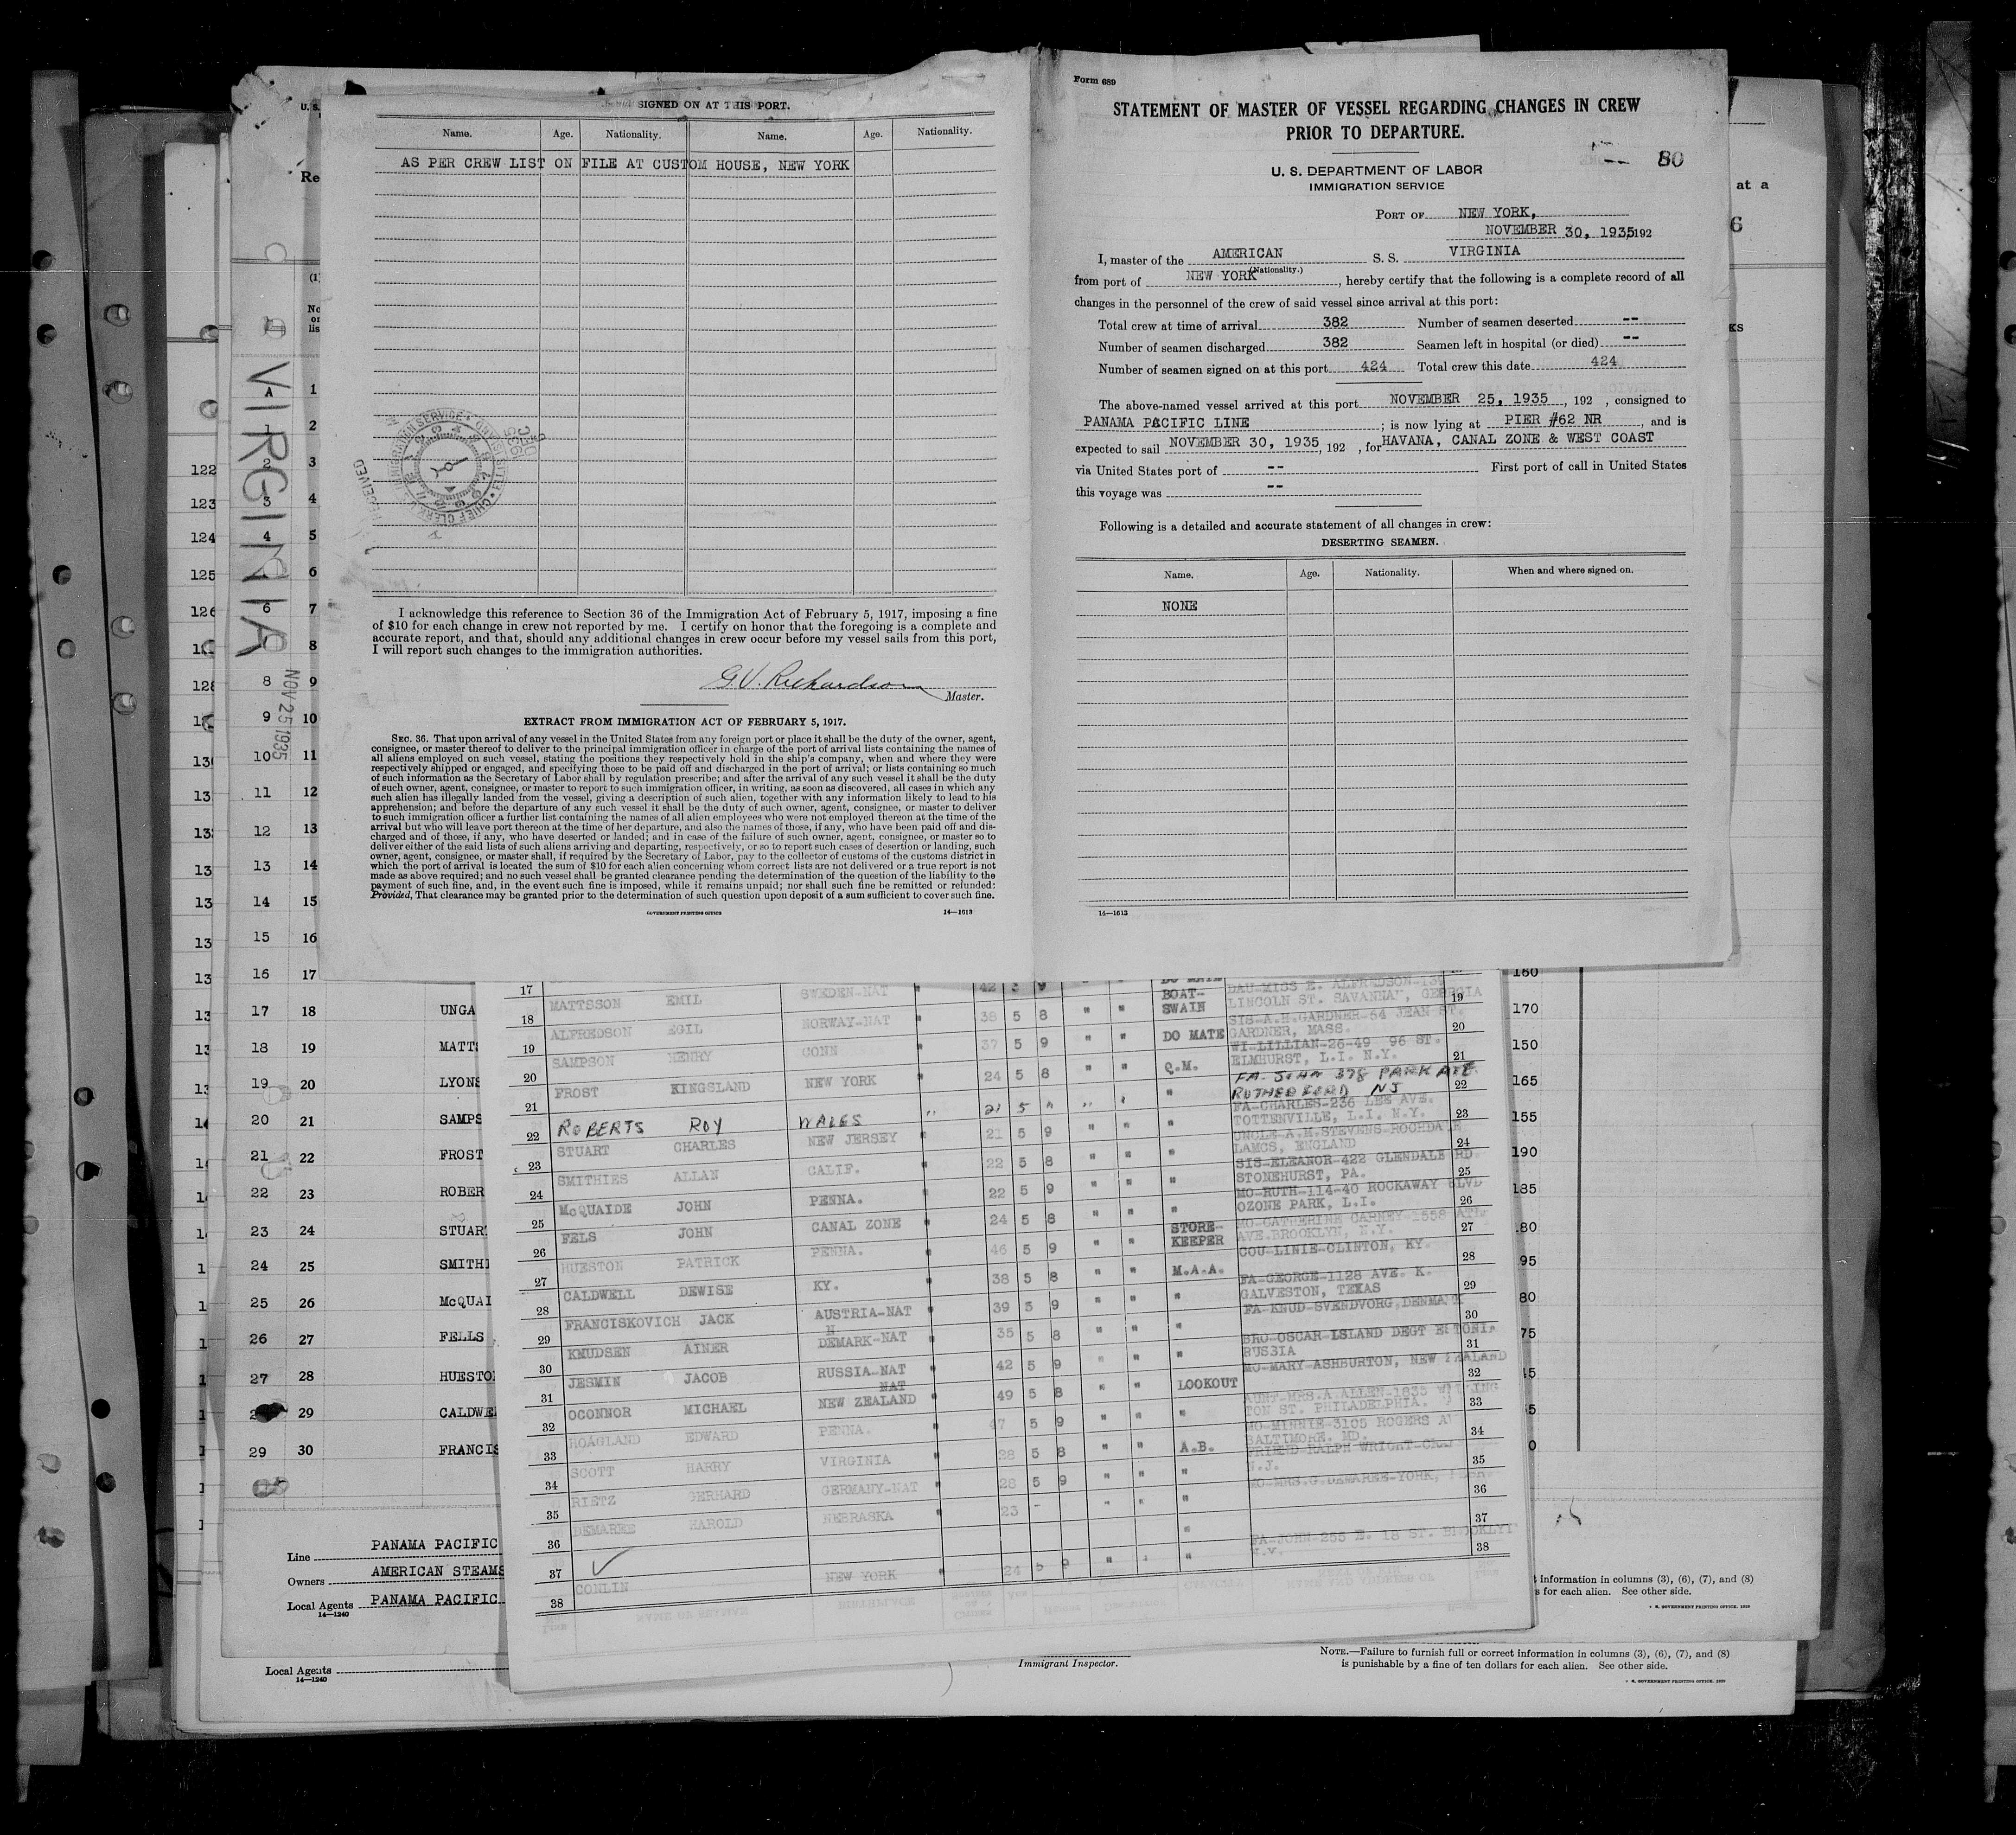 SIGNED ON AT THIS PORT.
Name. Age. Nationality. Name. Age. Nationality.
AS PER CREW LIST ON FILE AT CUSTOM HOUSE, NEW YORK
I acknowledge this reference to Section 36 of the Immigration Act of February 5, 1917, imposing a fine
of $10 for each change in crew not reported by me. I certify on honor that the foregoing is a complete and
accurate report, and that, should any additional changes in crew occur before my vessel sails from this port,
I will report such changes to the immigration authorities.
G.V. Richardson
Master.
EXTRACT FROM IMMIGRATION ACT OF FEBRUARY 5, 1917.
SEC. 36. That upon arrival of any vessel in the United States from any foreign port or place it shall be the duty of the owner, agent,
consignee, or master thereof to deliver to the principal immigration officer in charge of the port of arrival lists containing the names of
all aliens employed on such vessel, stating the positions they respectively hold in the ship's company, when and where they were
respectively shipped or engaged, and specifying those to be paid off and discharged in the port of arrival; or lists containing so much
of such information as the Secretary of Labor shall by regulation prescribe; and after the arrival of any such vessel it shall be the duty
of such owner, agent, consignee, or master to report to such immigration officer, in writing, as soon as discovered, all cases in which any
such alien has illegally landed from the vessel, giving a description of such alien, together with any information likely to lead to his
apprehension; and before the departure of any such vessel it shall be the duty of such owner, agent, consignee, or master to deliver
to such immigration officer a further list containing the names of all alien employees who were not employed thereon at the time of the
arrival but who will leave port thereon at the time of her departure, and also the names of those, if any, who have been paid off and dis-
charged and of those, if any, who have deserted or landed; and in case of the failure of such owner, agent, consignee, or master so to
deliver either of the said lists of such aliens arriving and departing, respectively, or so to report such cases of desertion or landing, such
owner, agent, consignee, or master shall, if required by the Secretary of Labor, pay to the collector of customs of the customs district in
which the port of arrival is located the sum of $10 for each alien concerning whom correct lists are not delivered or a true report is not
made as above required; and no such vessel shall be granted clearance pending the determination of the question of the liability to the
payment of such fine, and, in the event such fine is imposed, while it remains unpaid; nor shall such fine be remitted or refunded:
Provided, That clearance may be granted prior to the determination of such question upon deposit of a sum sufficient to cover such fine.
GOVERNMENT PRINTING OFFICE 14—1613
Form 689
STATEMENT OF MASTER OF VESSEL REGARDING CHANGES IN CREW
PRIOR TO DEPARTURE.
80
U. S. DEPARTMENT OF LABOR
IMMIGRATION SERVICE
PORT OF NEW YORK,
NOVEMBER 30, 1935 192
I, master of the AMERICAN S. S. VIRGINIA
(Nationality.)
from port of NEW YORK, hereby certify that the following is a complete record of all
changes in the personnel of the crew of said vessel since arrival at this port:
Total crew at time of arrival 382 Number of seamen deserted --
Number of seamen discharged 382 Seamen left in hospital (or died) --
Number of seamen signed on at this port 424 Total crew this date 424
The above-named vessel arrived at this port NOVEMBER 25, 1935, 192 , consigned to
PANAMA PACIFIC LINE ; is now lying at PIER #62 NR , and is
expected to sail NOVEMBER 30, 1935, 192 , for HAVANA, CANAL ZONE & WEST COAST
via United States port of -- First port of call in United States
this voyage was --
Following is a detailed and accurate statement of all changes in crew:
DESERTING SEAMEN.
Name. Age. Nationality. When and where signed on.
NONE
14—1613
VIRGINIA
NOV 25 1935
17 18 UNGA
18 19 MATTS
19 20 LYONS
20 21 SAMPS
21 22 FROST
22 23 ROBER
23 24 STUAR
24 25 SMITH
25 26 McQUAI
26 27 FELLS
27 28 HUESTO
29 CALDWE
29 30 FRANCIS
17 MATTSSON EMIL SWEDEN-NAT " 42 5 9
18 ALFREDSON EGIL NORWAY-NAT " 38 5 8 " " BOAT-SWAIN DAU-MISS E. ALFREDSON LINCOLN ST. SAVANNAH, GEORGIA 19
19 SAMPSON HENRY CONN " 37 5 9 " " DO MATE SIS-A.H.GARDNER-64 JEAN ST. GARDNER, MASS. 20
20 FROST KINGSLAND NEW YORK " 24 5 8 " " Q.M. WI-LILLIAN-26-49 96 ST. ELMHURST, L.I. N.Y. 21
21 ROBERTS ROY WALES " 21 5 " " " FA-JOHN 378 PARK AVE RUTHERFORD NJ 22
22 STUART CHARLES NEW JERSEY " 21 5 9 " " " FA-CHARLES-236 LEE AVE. TOTTENVILLE, L.I. N.Y. 23
23 SMITHIES ALLAN CALIF. " 22 5 8 " " " UNCLE A.H.STEVENS-ROCHDALE LANCS, ENGLAND 24
24 McQUAIDE JOHN PENNA. " 22 5 9 " " " SIS-ELEANOR-422 GLENDALE RD. STONEHURST, PA. 25
25 FELS JOHN CANAL ZONE " 24 5 8 " " " MO-RUTH-114-40 ROCKAWAY BLVD OZONE PARK, L.I. 26
26 HUESTON PATRICK PENNA. " 46 5 9 " " STORE-KEEPER MO-CATHERINE CARNEY-1558 ATL AVE.BROOKLYN, N.Y. 27
27 CALDWELL DEWISE KY. " 38 5 8 " " M.A.A. COU-LINIE-CLINTON, KY. 28
28 FRANCISKOVICH JACK AUSTRIA-NAT " 39 5 9 " " " FA-GEORGE-1128 AVE. K. GALVESTON, TEXAS 29
29 KNUDSEN AINER DEMARK-NAT " 35 5 8 " " " FA-KNUD-SVENDVORG,DENMARK 30
30 JESMIN JACOB RUSSIA-NAT " 42 5 9 " " " BRO-OSCAR-ISLAND DEGT ESTONIA RUSSIA 31
31 OCONNOR MICHAEL NEW ZEALAND NAT " 49 5 8 " " LOOKOUT MO-MARY-ASHBURTON, NEW ZEALAND 32
32 HOAGLAND EDWARD PENNA. " 47 5 9 " " " AUNT-MRS.A.ALLEN-1835 TON ST. PHILADELPHIA. 33
33 SCOTT HARRY VIRGINIA " 28 5 8 " " A.B. MO-MINNIE-3105 ROGERS AV BALTIMORE. MD. 34
34 RIETZ GERHARD GERMANY-NAT " 28 5 9 " " " FRIEND-RALPH WRIGHT N.J. 35
35 DEMAREE HAROLD NEBRASKA " 23 - " " " MO-MRS.G.DEMAREE-YORK, 36
36 37
37 CONLIN NEW YORK " 24 5 9 " " " FA-JOHN-255 E. 18 ST. BROOKLYN N.Y. 38
38
Line PANAMA PACIFIC
Owners AMERICAN STEAMS
Local Agents PANAMA PACIFIC
14—1240
information in columns (3), (6), (7), and (8)
s for each alien. See other side.
Local Agents
14—1240
Immigrant Inspector.
NOTE.—Failure to furnish full or correct information in columns (3), (6), (7), and (8)
is punishable by a fine of ten dollars for each alien. See other side.